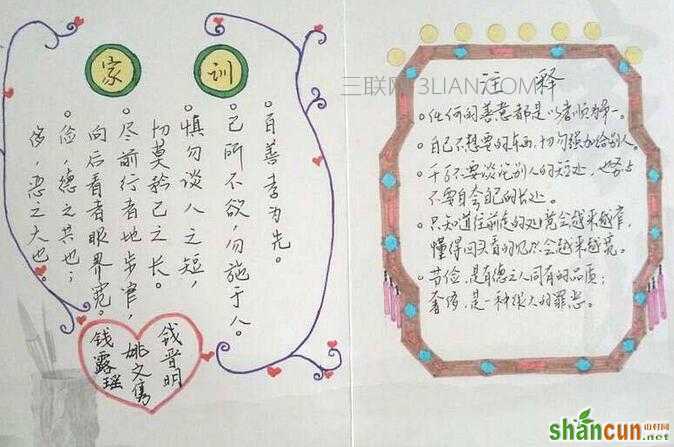 家训
。百善孝为先。
。己所不欲,勿施于人。
。慎勿谈人之短,
切莫矜己之长。
。尽前行者地步窄,
向后看者眼界宽。
。俭,德之共也;
侈,恶之大也。
钱晋明
姚文隽
钱露瑶
三联网 3LIAN.COM
注释
。任何的善意都是以孝顺为第一。
。自己不想要的东西,切勿强加给别人。
。千万不要谈说别人的短处,也务
不要自夸自己的长处。
。只知道往前走的处境会越来越窄,
懂得回头看的见识会越来越宽。
。节俭,是有德之人同有的品质;
奢侈,是一种很大的罪恶。
shancun
山村网
.net